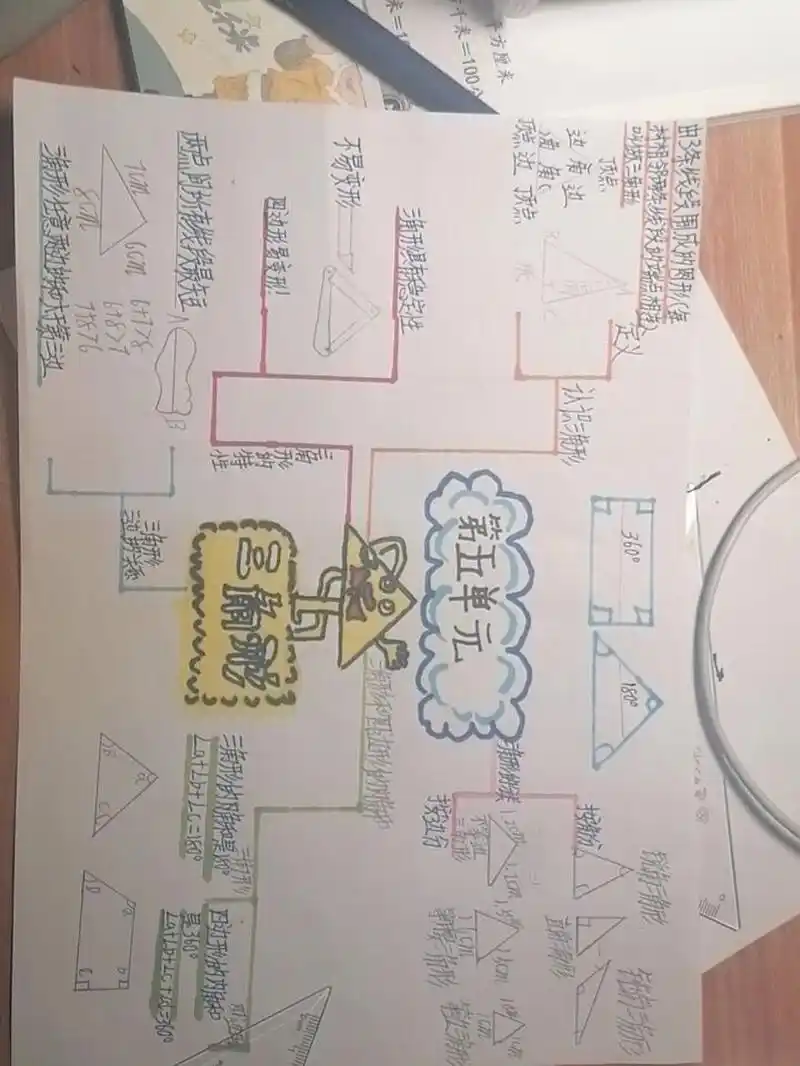 第五单元
三角形
认识三角形
定义
由3条线段围成的图形(每
相邻两条线段的端点相连)
叫做三角形
顶点
边 角 边
角 角
顶点 边 顶点
三角形的特性
三角形具有稳定性
不易变形
四边形易变形!
三角形三边的关系
两点间所有线段最短
A
B
7cm
6cm
8cm
6+7>8
6+8>7
7+8>6
三角形任意两边的和大于第三边
360°
180°
三角形的分类
按角分
锐角三角形
直角三角形
按边分
不等边三角形
等腰三角形
等边三角形
三角形和四边形的内角和
三角形
三角形的内角和是180°
∠a+∠b+∠c=180°
四边形的内角和
是360°
a
B
C
D